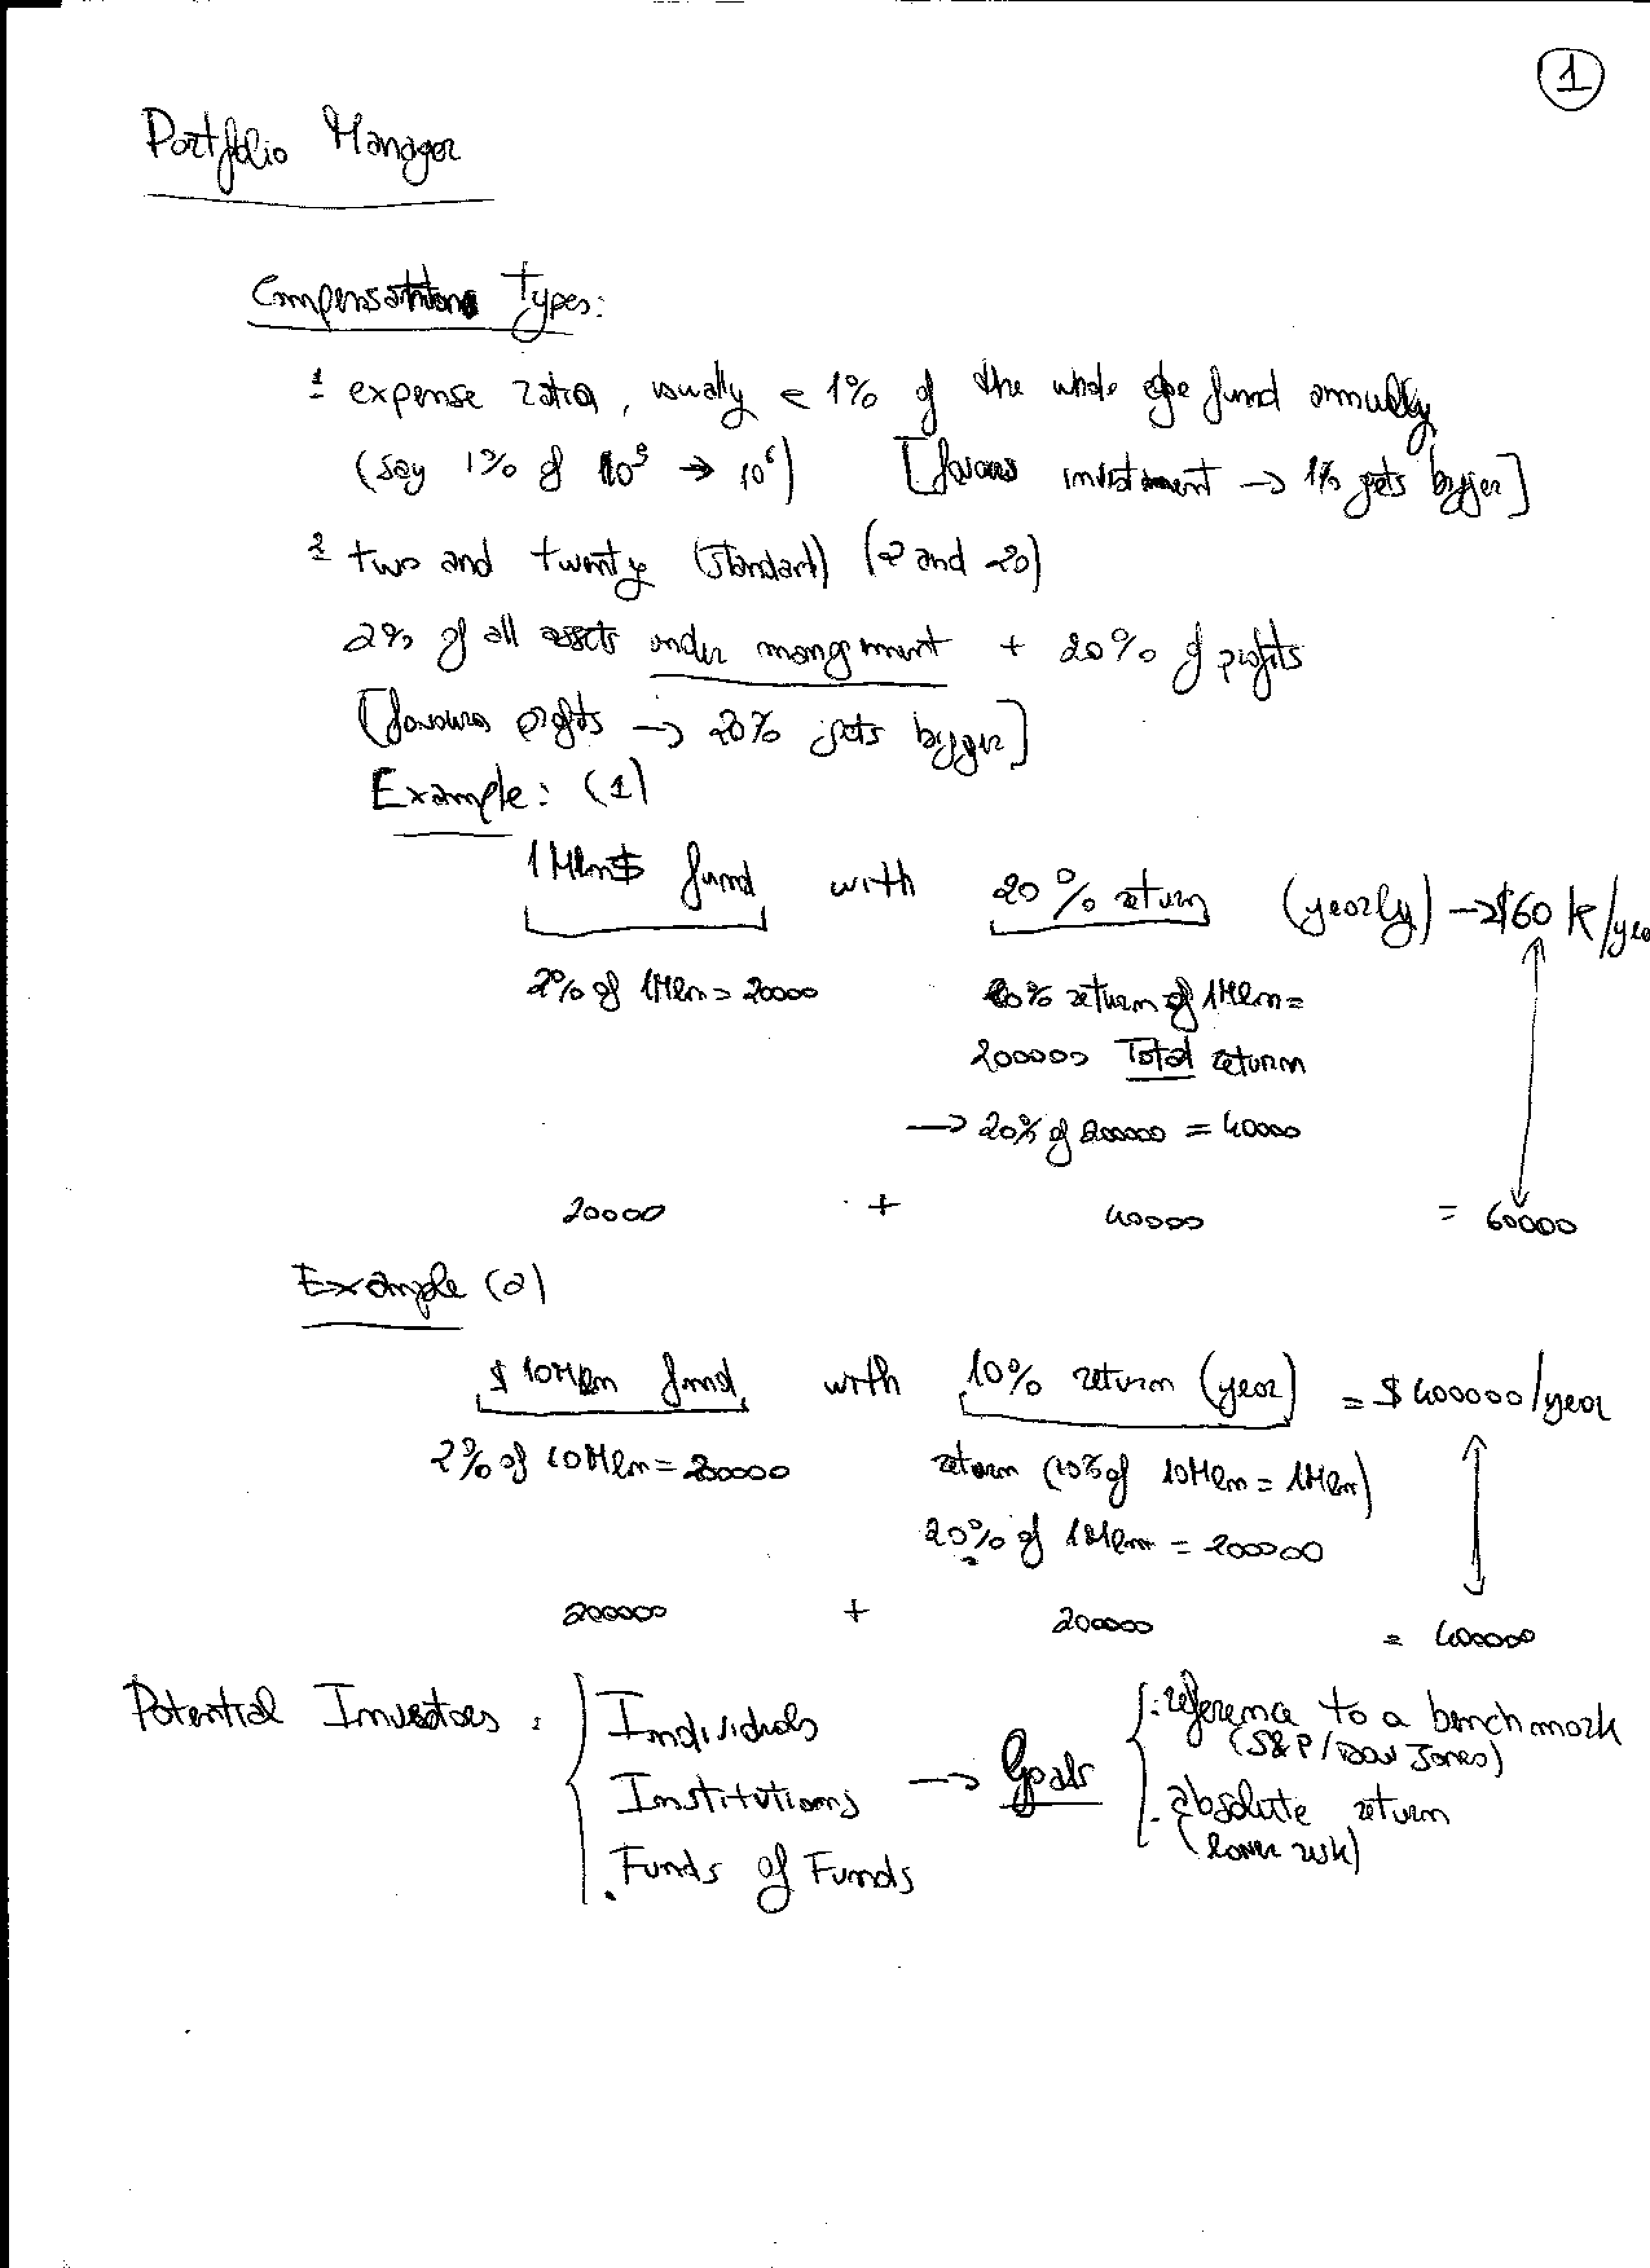 1
Portfolio Manager
Compensations Types:
1 expense ratio, usually < 1% of the whole fund annually
(say 1% of → 10⁶) [favours investment → 1% gets bigger]
2 two and twenty (standard) (2 and 20)
2% of all assets under mangment + 20% of profits
[favours profits → 20% gets bigger]
Example: (1)
1 Mln$ fund with 20% return (yearly) → $60 k/yea
2% of 1Mln = 20000 20% return of 1Mln =
200000 Total return
→ 20% of 200000 = 40000
20000 + 40000 = 60000
Example (2)
$ 10 Mln fund with 10% return (year) = $ 400000/year
2% of 10Mln = 200000 return (10% of 10Mln = 1Mln)
20% of 1Mln = 200000
200000 + 200000 = 400000
Potential Investors : Individuals → Goals . reference to a benchmark
(S&P / Dow Jones)
Institutions . absolute return
(lower risk)
. Funds of Funds